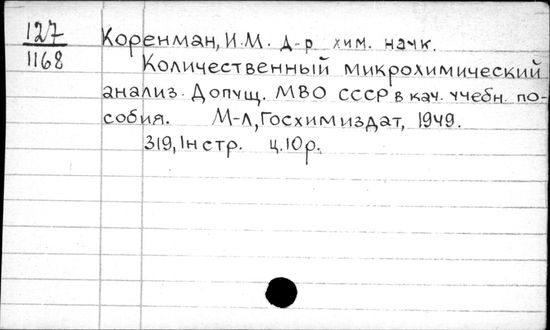 127
1168
Коренман, И.М. д-р хим. наук.
Количественный микрохимический
анализ. Допущ. МВО СССР в кач. учебн. по-
собия. М-Л, Госхимиздат, 1949.
319, 1н стр. ц. 10 р.